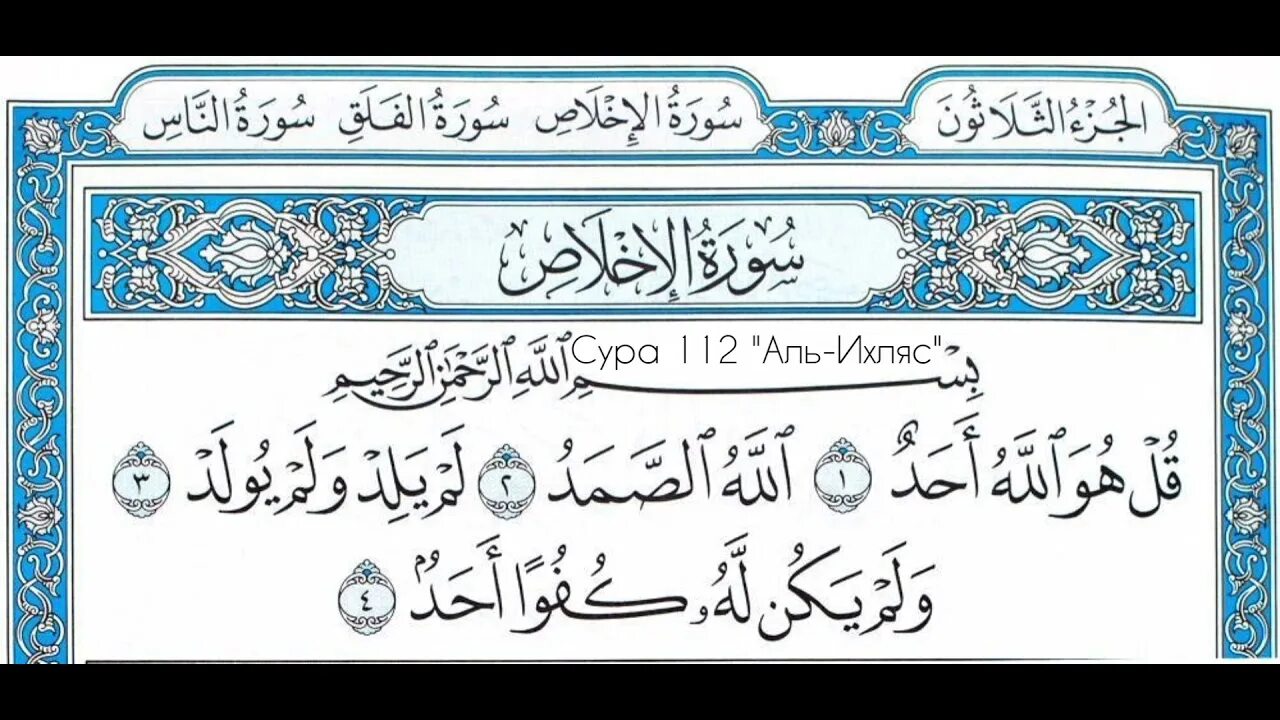 الجُزْءُ الثَّلَاثُونَ سُورَةُ الإِخْلَاصِ سُورَةُ الفَلَقِ سُورَةُ النَّاسِ
سُورَةُ الإِخْلَاصِ
Сура 112 "Аль-Ихляс"
بِسْمِ ٱللَّهِ ٱلرَّحْمَٰنِ ٱلرَّحِيمِ
قُلْ هُوَ ٱللَّهُ أَحَدٌ ١ ٱللَّهُ ٱلصَّمَدُ ٢ لَمْ يَلِدْ وَلَمْ يُولَدْ ٣
وَلَمْ يَكُن لَّهُۥ كُفُوًا أَحَدٌۢ ٤